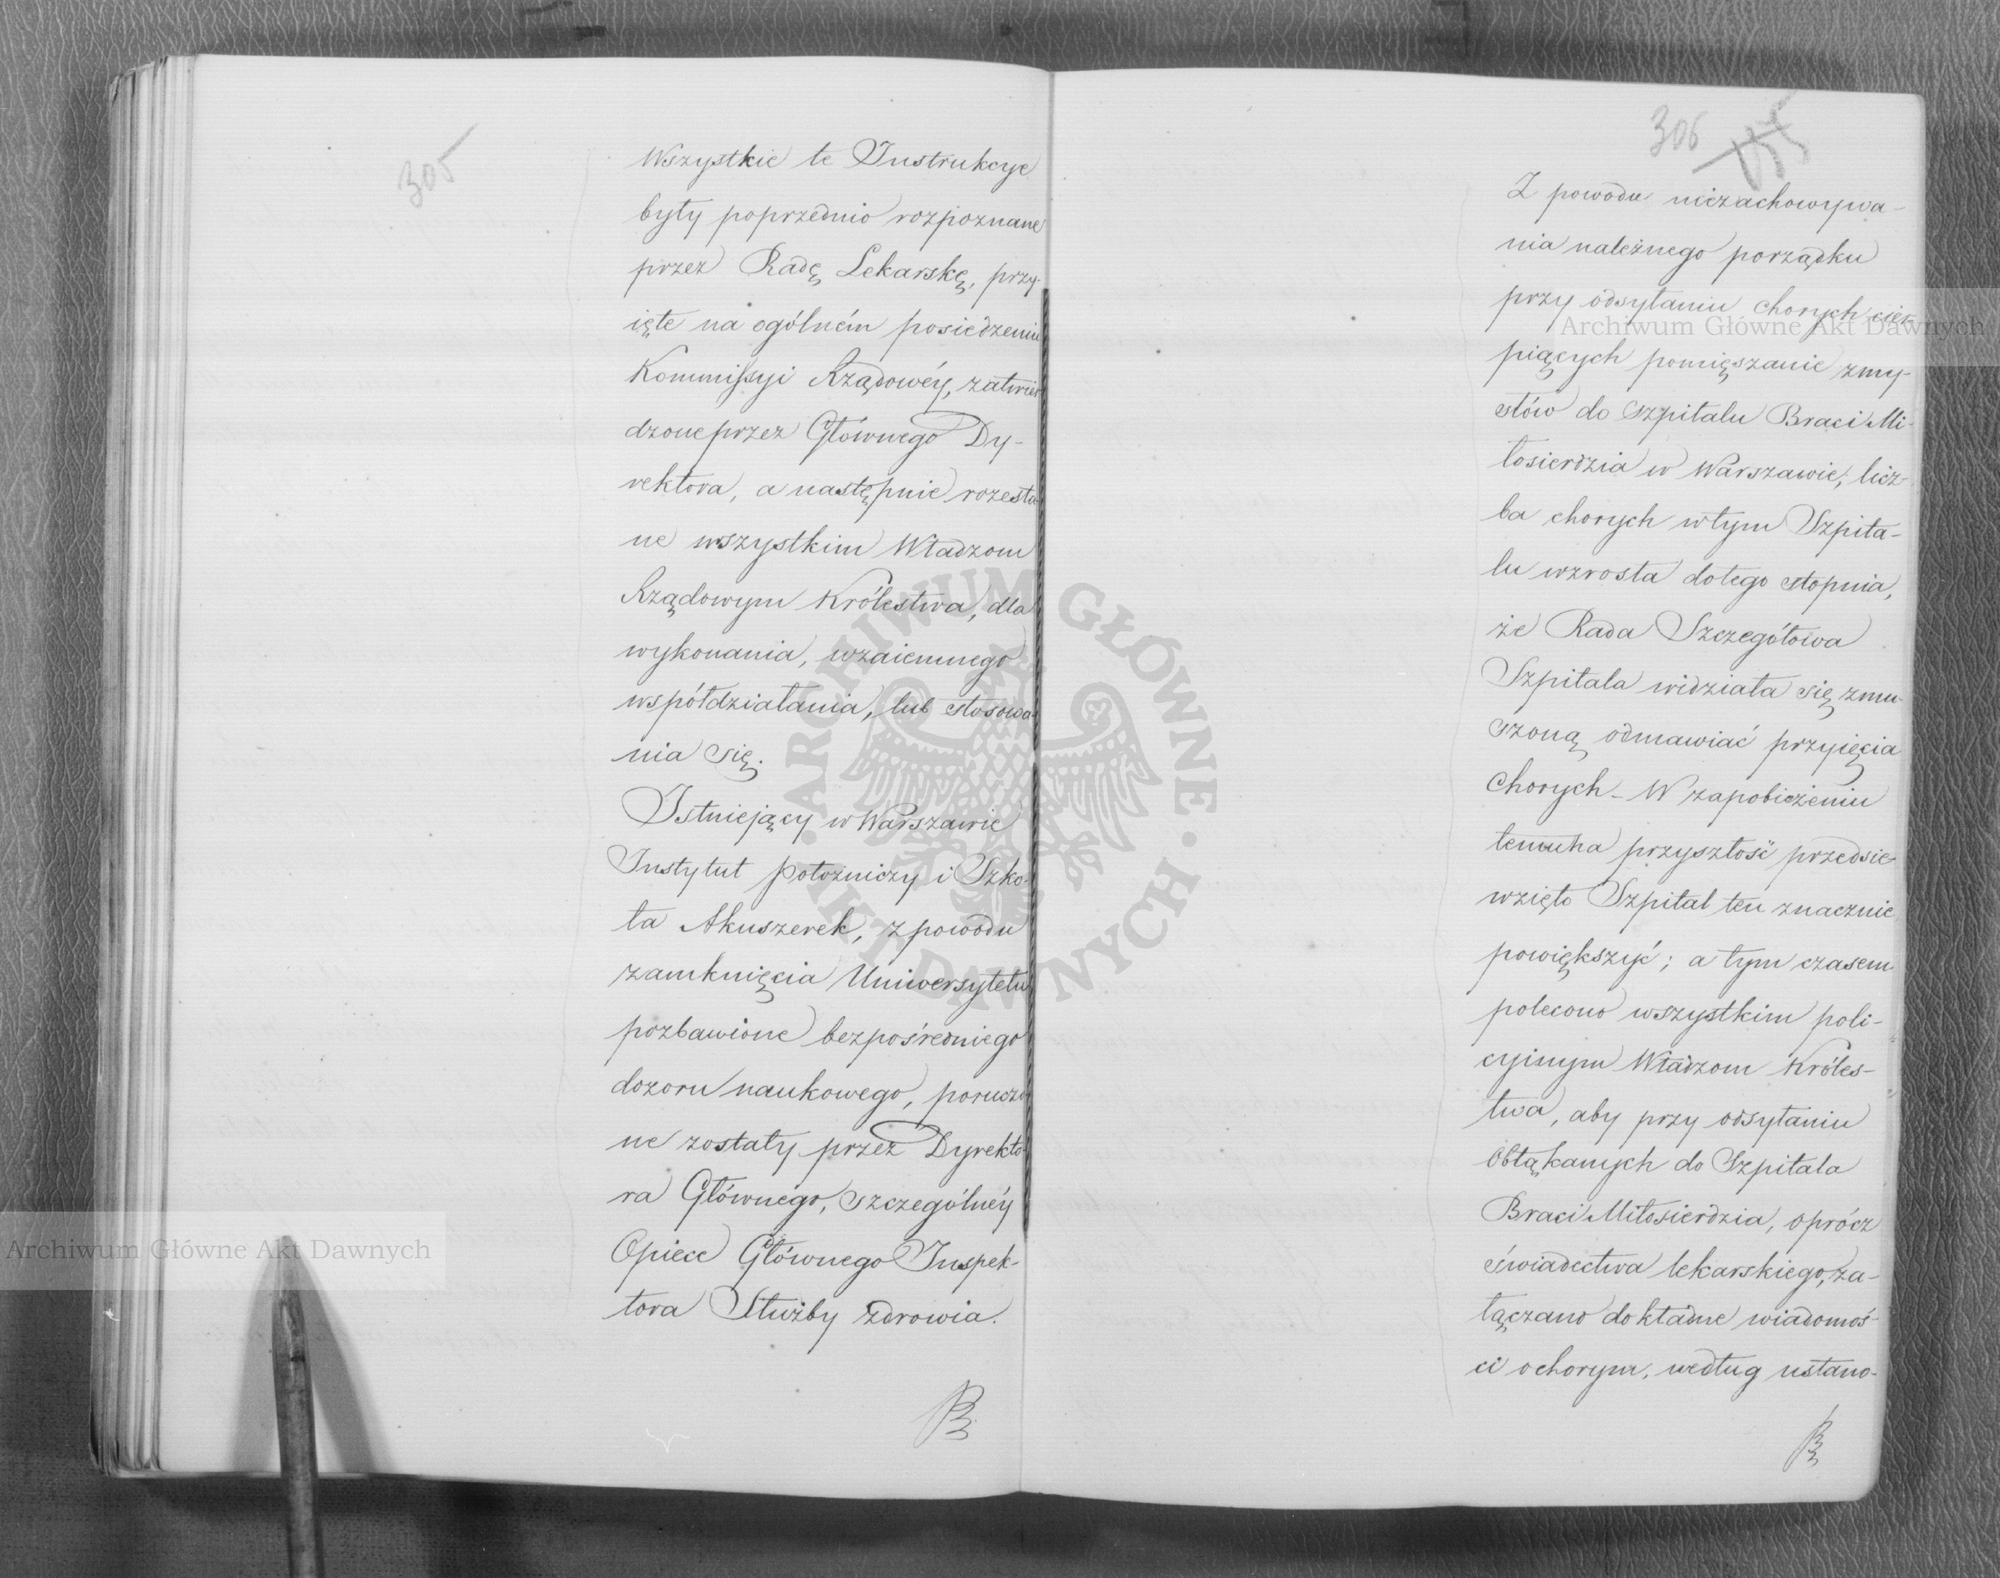 305
Wszystkie te Instrukcye
były poprzednio rozpoznane
przez Radę Lekarską, przy-
ięte na ogólném posiedzeniu
Kommissyi Rządowéy, zatwier
dzone przez Głównego Dy-
rektora, a następnie rozesła
ne wszystkim Władzom
Rządowym Królestwa, dla
wykonania, wzaiemnego
współdziałania, lub stosowa
nia się.
Istniejący w Warszawie
Instytut Położniczy i Szko-
ła Akuszerek, z powodu
zamknięcia Uniwersytetu
pozbawione bezpośredniego
dozoru naukowego, poruczo
ne zostały przez Dyrekto
ra Głównego, szczególnéy
Opiece Głównego Inspek-
tora Służby zdrowia.
306
Z powodu niezachowywa-
nia należnego porządku
przy odsyłaniu chorych cier
piących pomięszanie zmy-
słów do szpitalu Braci Mi-
łosierdzia w Warszawie, licz-
ba chorych w tym Szpita-
lu wzrosła do tego stopnia,
że Rada Szczegółowa
Szpitala widziała się zmu-
szoną odmawiać przyięcia
Chorych – W zapobieżeniu
temu na przyszłość przedsię-
wzięto Szpital ten znacznie
powiększyć; a tym czasem
polecono wszystkim poli-
cyinym Władzom Króles-
twa, aby przy odsyłaniu
Obłąkanych do Szpitala
Braci Miłosierdzia, oprócz
świadectwa lekarskiego, za-
łączano dokładne wiadomoś-
ci o chorym, według ustano-
Archiwum Główne Akt Dawnych
Archiwum Główne Akt Dawnych
· ARCHIWUM GŁÓWNE · AKT DAWNYCH